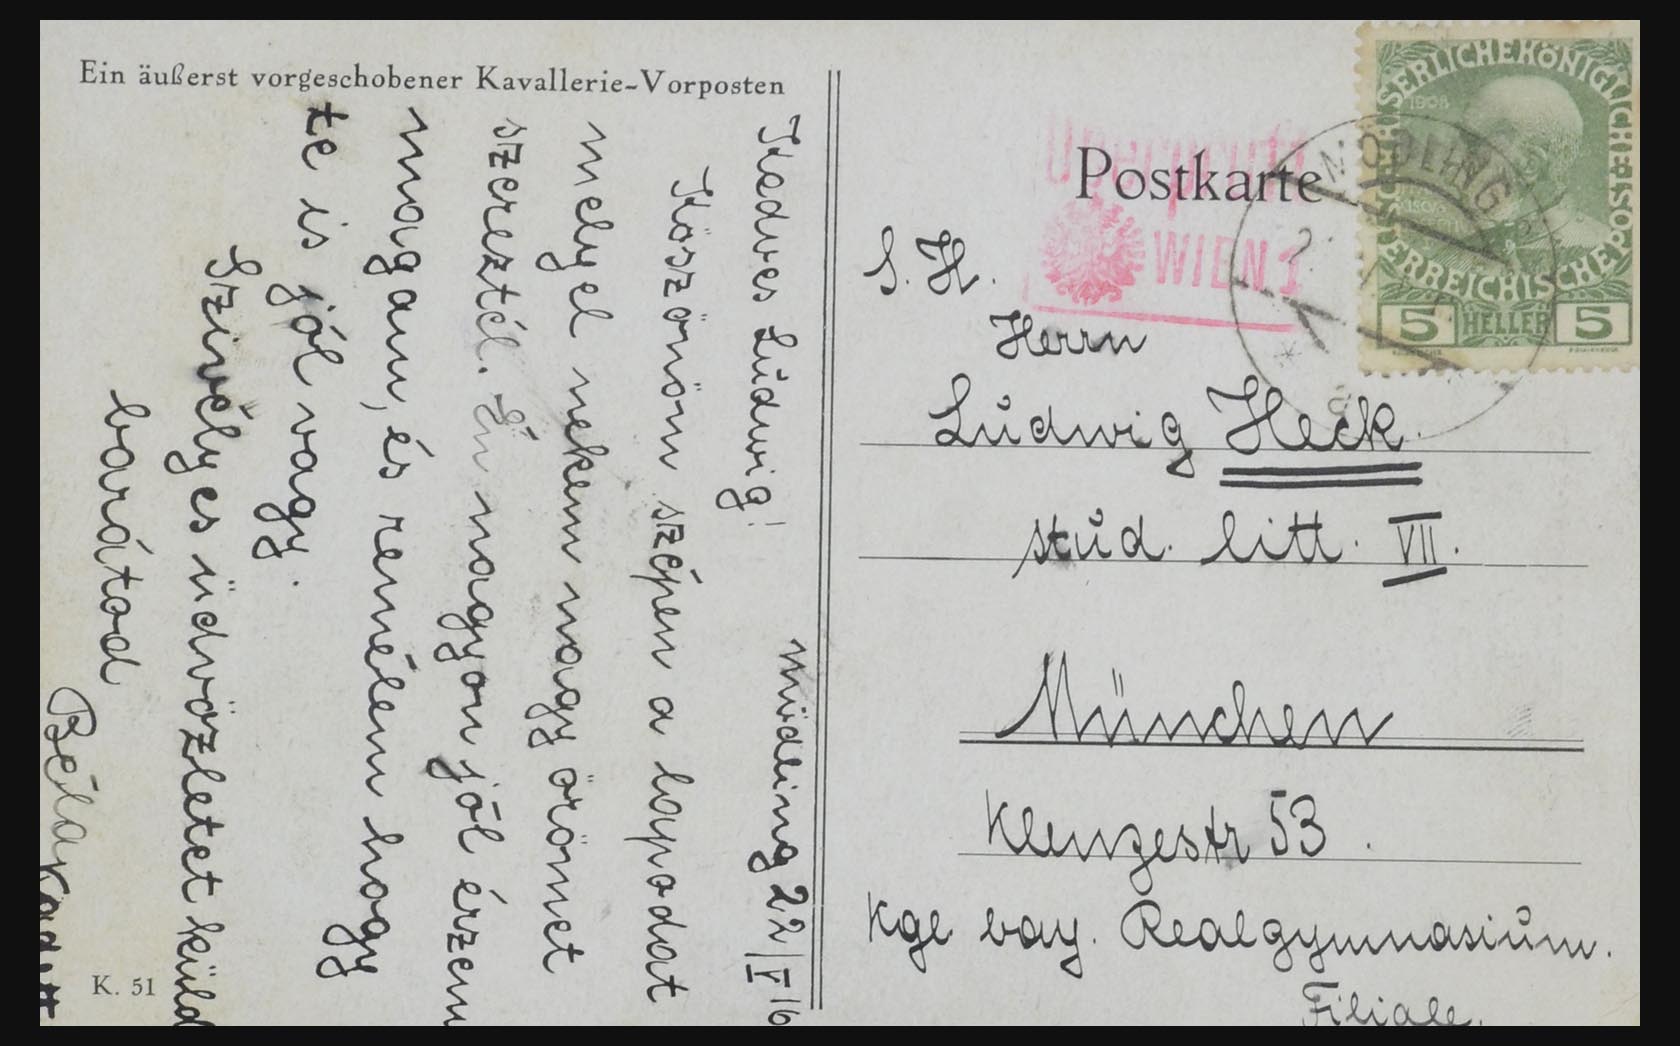 Ein äußerst vorgeschobener Kavallerie-Vorposten
Mödling 22/V 16
Kedves Ludwig!
Köszönöm szépen a lapodat
melyel nekem nagy örömet
szereztél. Én nagyon jól érzem
magam, és remélem hogy
te is jól vagy.
Szivélyes üdvözletet küld
barátod
Béla Kadett
K. 51
Postkarte
Überprüft
WIEN 1
MÖDLING
SERLICHEKÖNIGLICHE
ÖSTERREICHISCHE
1908
5 HELLER 5
S. H.
Herrn
Ludwig Heck
stud. litt. VII.
München
Klenzestr 53.
Kgl bay. Realgymnasium.
Filiale.